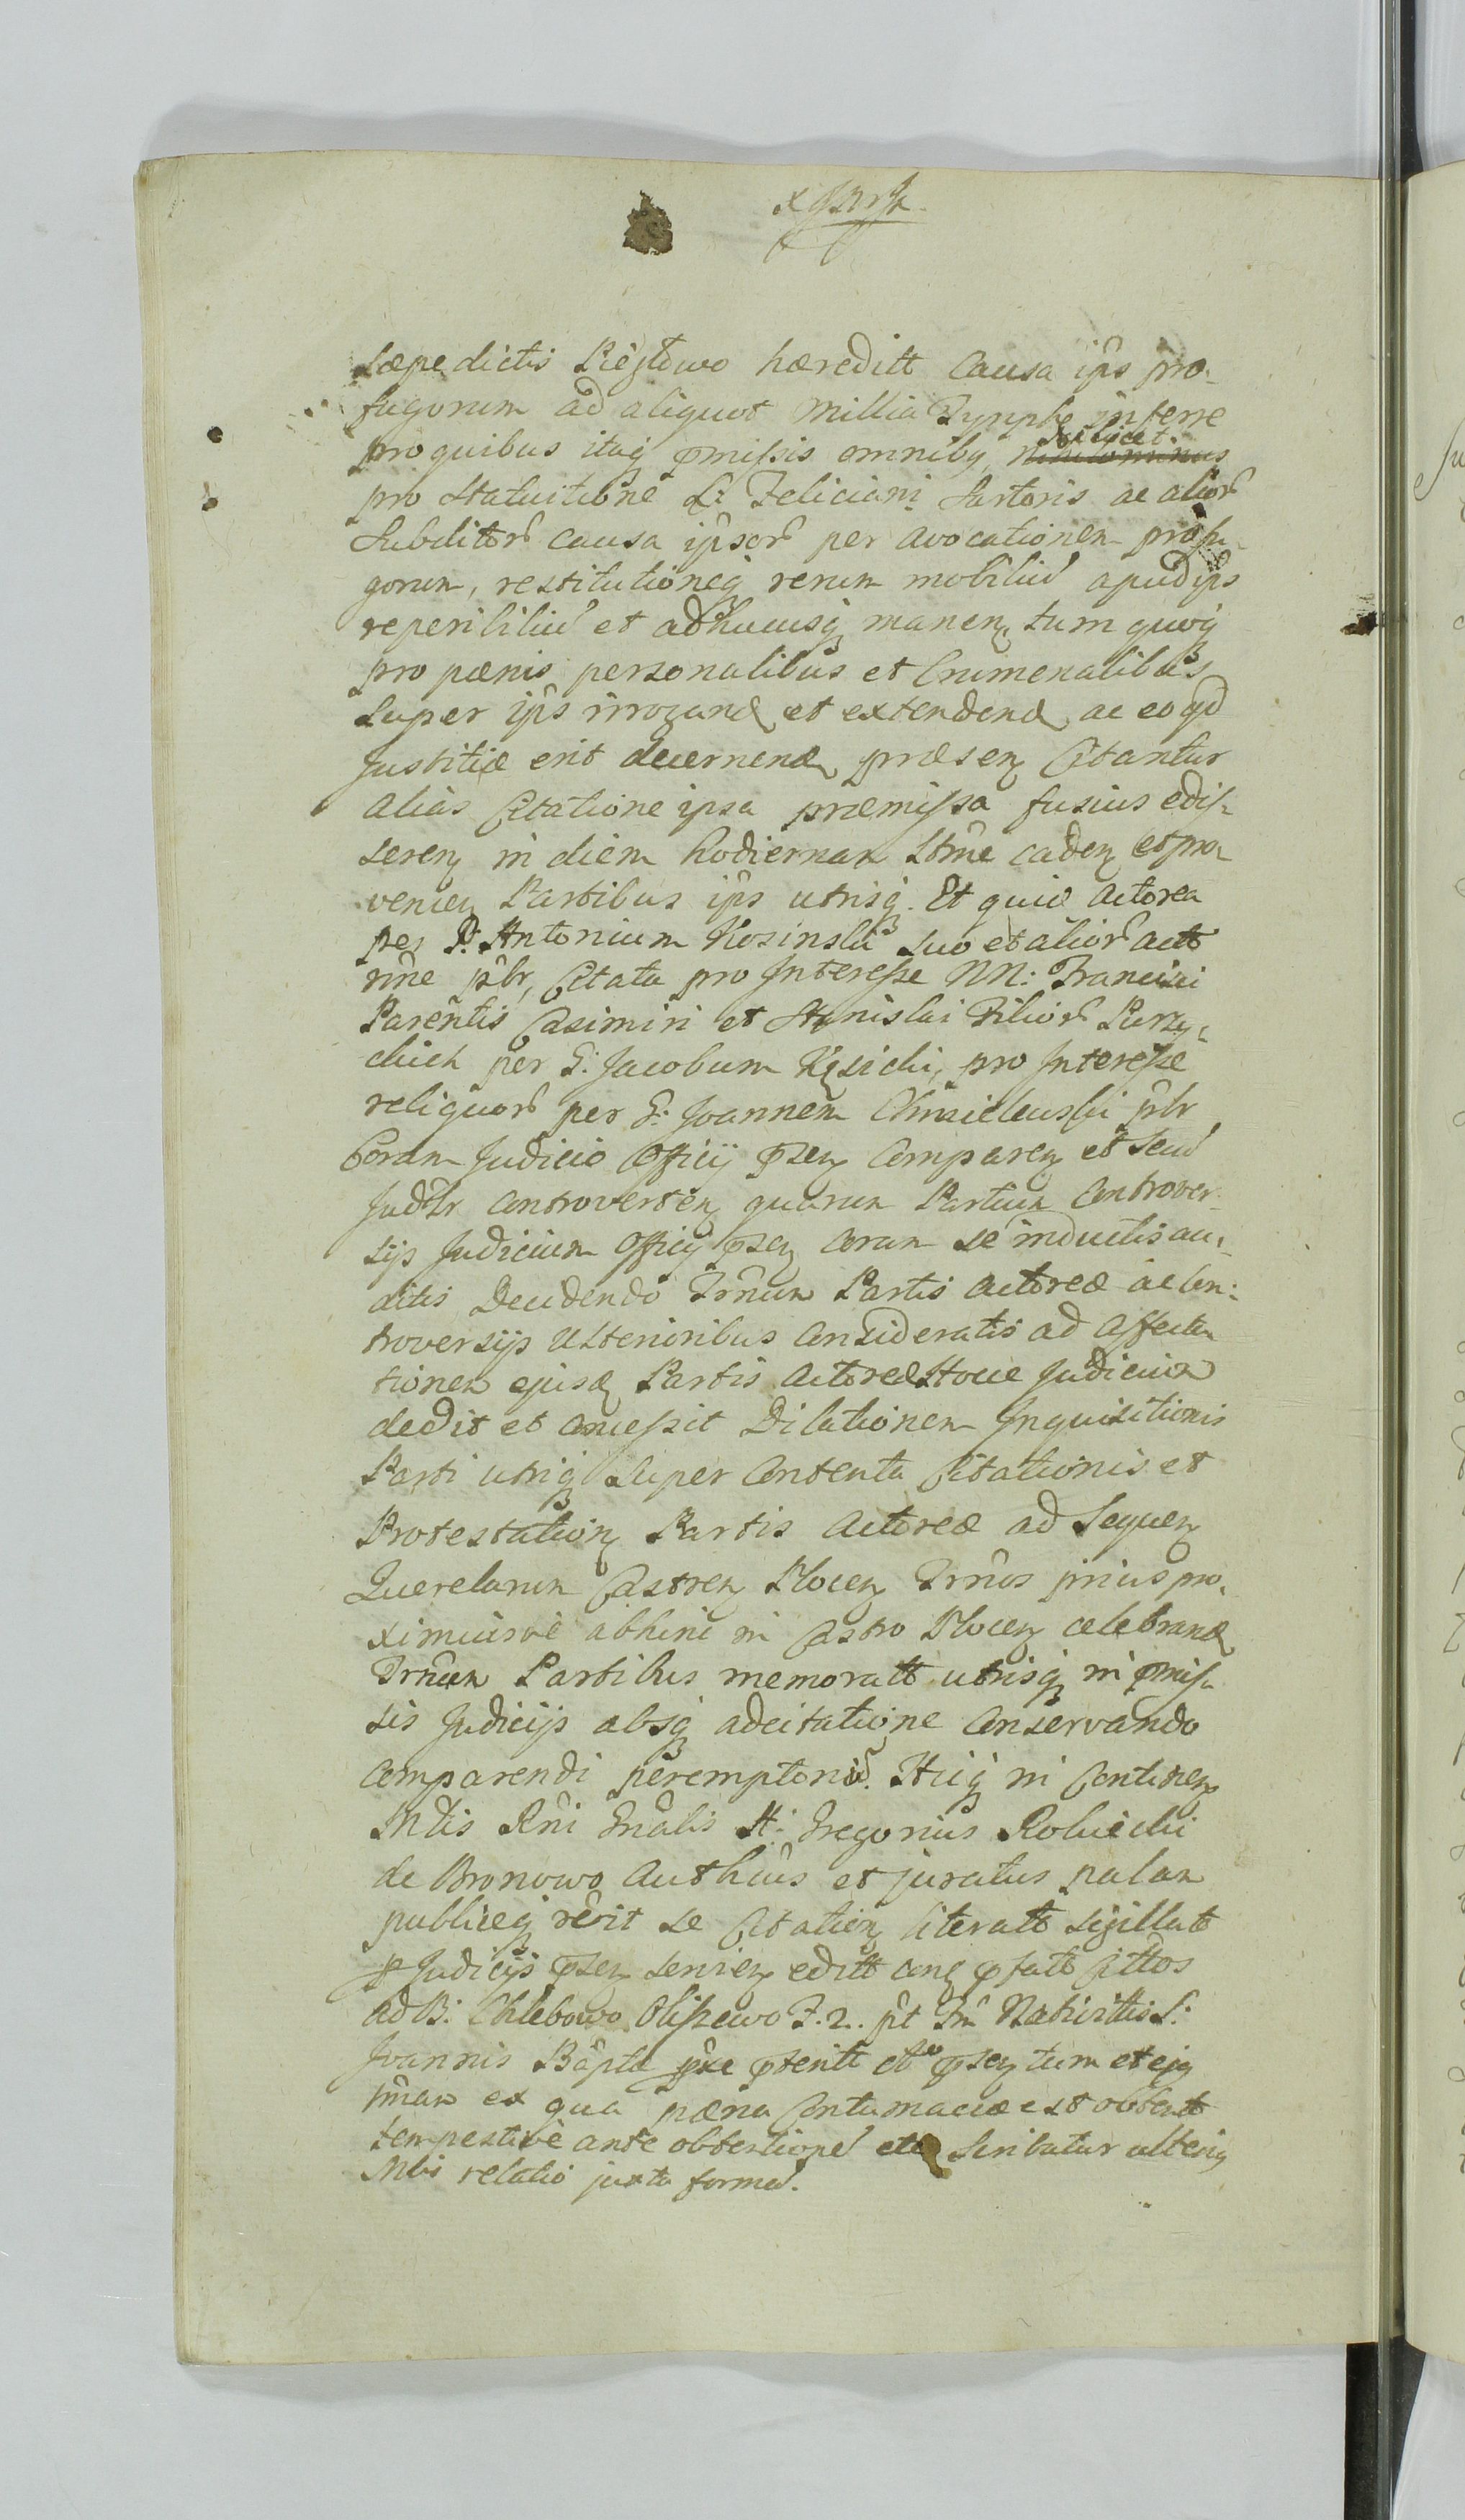 Sæpedictis Kiestowo hæreditt causa ips pro¬
fugorum ad aliquot Millia Tympho inferre
pro quibus itaq pmissis omnibq nihilominus scilicet
pro statuitione L: Feliciani Sartoris ac alior
Subditor causa ipsor per avocationem profu¬
gorum, restitutioneq rerum mobiliu apud ips
reperibiliu et adhucusq manen, tum quoq
pro pænis personalibus et Crimenalibus
super ips irrogand et extendend ac eo qd
Justitiæ erit decernend præsen Citantur
alias Citatione ipsa præmissa fusius edis¬
seren in diem hodiernam Ltme caden et pro¬
venien Partibus ips utrisq. Et quid Actorea
per P. Antonium Kosinski suo et alior actt
nne plr, Citata pro Interesse NN: Francisci
Parentis Casimiri et Stanislai Filior Purzy¬
ckich per G: Jacobum Kęsicki, pro Interesse
reliquor per G: Joannem Chmielewski plr
Coram Judicio Officij psen Comparen et secu
Judlr Controverten quarum Partium Controver¬
sijs Judicium Officij psen coram se inductis au¬
ditis Decidendo Trnum Partis Actoreæ ac Con¬
troversijs Ulterioribus Consideratis ad affecta
tionem ejusd Partis Actoreæ Hocce Judicium
dedit et Concessit Dilationem Inquisitionis
Parti utriq super Contenta Citationis et
Protestation Partis Actoreæ ad Sequen
Querelarum Castren Plocen Trnos prius pro¬
ximiusve abhinc in Castro Plocen celebrand
Trnum Partibus memoratt utrisq in pmis¬
sis Judicijs absq adcitatione Conservando
Comparendi peremptoriu. Huiq in Continen
Mtis Rni Gnalis H: Gregorius Robiecki
de Bronowo Authcus et juratus palam
publiceq recit se Citation literatt sigillatt
p Judicijs psen servien editt conq pfatt Cittos
ad B: Chlebowo Oliszewo F. 2. pt Fm Nativittis S:
Joannis Bapta pxe pterite et psen tum et ejq
pmam ex qua pæna Contumaciæ est obtent
tempestive ante obtentione etc Scribatur ulterig
Mlis relatio juxta forma.